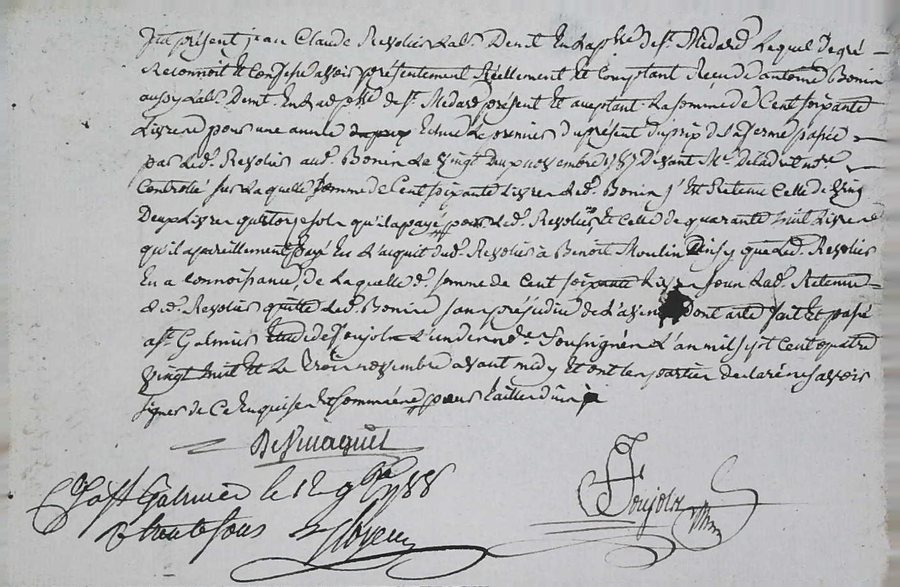 fut présent jean Claude Revolier Lab.r Dem.t En La p.sse de S.t Medard Lequel de gré
Reconnoit Et Confesse avoir présentement Réellement Et Comptant Reçu de antoine Bonin
aussy Lab.r Dem.t En Lad. p.sse de S.t Medard présent Et acceptant La somme de Cent soixante
Livres pour une année Echue Le premier du présent du prix de La ferme passée
par Led. Revolier aud. Bonin Le vingt novembre 1787 Devant M.e not.re
Controllé sur Laquelle somme de Cent soixante Livres Led. Bonin s'Est Retenu Celle de ving
Deux Livres quatorze sols qu'il a payé pour Led. Revolier Et Celle de quarante huit Livres
qu'il a pareillement payé En L'acquit dud. Revolier à Benoit Moulin ainsy que Led. Revolier
En a Connoissance, de Laquelle d. somme de Cent soixante Livres sous Lad. Retenue
Led. Revolier quitte Led. Bonin sans préjudice de L'avenir Dont acte fait Et passé
à S.t Galmier Etude de Joujoln L'un des not.res Soussignés L'an mil sept Cent quatre
vingt huit Et Le trois novembre avant midy Et ont Les parties declaré ne savoir
signer de Ce Enquises Et sommées
à S.t Galmier le 12 9bre 1788
R trente sous
Joujoln